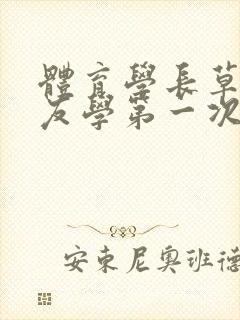 體育學長草
友學第一次
安東尼奧班德